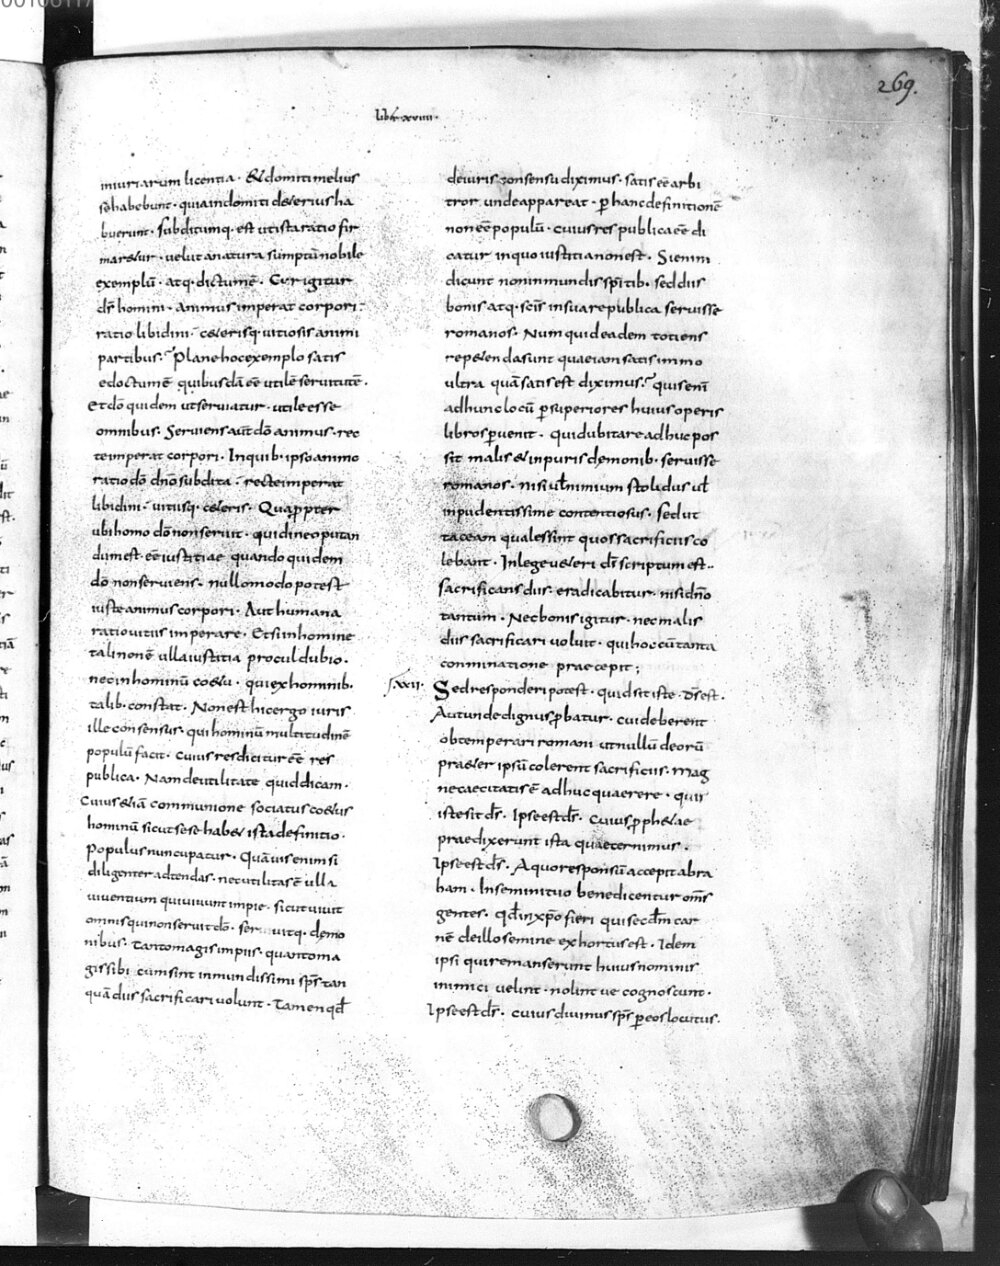 269.
libr xviiii·
iniuriarum licentia · & domiti melius
sehabebunt · quia indomiti deterius ha
buerunt · subditumq· est ut ista ratio fir
maretur · velut a natura sumptū nobile
exemplū · atq· dictum ē · Cur igitur
ds̄ homini · animus imperat corpori ·
ratio libidini · ceterisq· vitiosis animi
partibus · Plane hoc exemplo satis
edoctum ē quibusdā eē utilē servitutē ·
Et dō quidem ut serviatur · utile esse
omnibus · Serviens aūt dō animus · rec
te imperat corpori · Inquib· ipso animo
ratio dō dn̄o subdita · recte imperat
libidini · vitiisq· ceteris · Quapropter
ubi homo dō non servit · quid in eo putan
dum est · eē iustitiae quando quidem
dō non serviens · nullo modo potest
iuste animus corpori · Aut humana
ratio vitiis imperare · Et si in homine
tali non ē ulla iustitia procul dubio ·
nec in hominū coetu · qui ex hominib·
talib· constat · Non est hic ergo iuris
ille consensus · qui hominū multitudinē
populū facit · cuius res dicitur eē res
publica · Nam de utilitate quid dicam ·
Cuius etiā communione sociatus coetus
hominū sicut sese habet ista definitio ·
Populus nuncupatur · Quāvis enim si
diligenter adtendas · nec utilitas ē ulla
viventium qui vivunt impie · sicut vivit
omnis qui non servit dō · servitq· demo
nibus · Tanto magis impiis · quanto ma
gis sibi cum sint inmundissimi sps̄ tan
quā diis sacrificari volunt · Tamen qd̄
de iuris consensu diximus · satis eē arbi
tror unde appareat · p hanc definitionē
non eē populū · cuius res publica eē di
catur in quo iustitia non est · Si enim
dicunt non inmundis spītib· sed diis
bonis atq· scīs in sua re publica servisse
romanos · Num quid eadem totiens
repetenda sunt quae iam satis immo
ultra quā satis est diximus · quis enī
ad hunc locū p superiores huius operis
libros pvenit · qui dubitare adhuc pos
sit malis & inpuris demonib· servisse
romanos · nisi ul̄ nimium stolidus ul̄
inpudentissime contentiosus · Sed ut
taceam quales sint quos sacrificiis co
lebant · In lege veteri dī scriptum est ··
sacrificans diis · eradicabitur · nisi dn̄o
tantum · Nec bonis igitur · nec malis
diis sacrificari voluit · qui hoc cū tanta
conminatione praecepit ;
xxii· Sed responderi potest · quis sit iste · ds̄ est ·
Aut unde dignus pbatur · cui deberent
obtemperari romani ut nullū deorū
praeter ipsū colerent sacrificiis · mag
ne caecitatis ē adhuc quaerere · quis
iste sit ds̄ · Ipse est ds̄ · Cuius pphetae
praedixerunt ista quae cernimus ·
Ipse est ds̄ · A quo responsū accepit abra
ham · In semine tuo benedicentur om̄s
gentes · qd̄ in xp̄o fieri qui secdm̄ car
nē de illo semine exhortus est · Idem
ipsi qui remanserunt huius nominis
inimici velint · nolint ve cognoscunt ·
Ipse est ds̄ · cuius divinus sps̄ p eos locutus ·